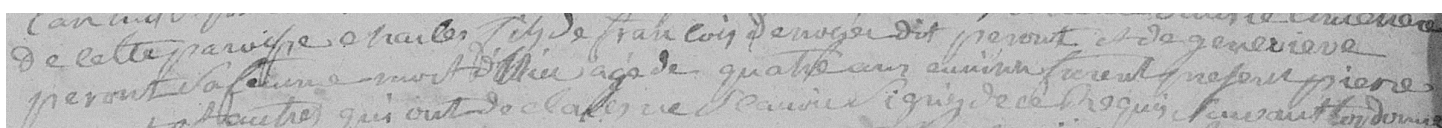 de cette paroisse charles fils de francois denoyer dit peront et de genevieve
peront sa femme mort d'hier agé de quatre ans environ furent present pierre
et autres qui ont declarés ne scavoir signés de ce requis suivant l'ordonn